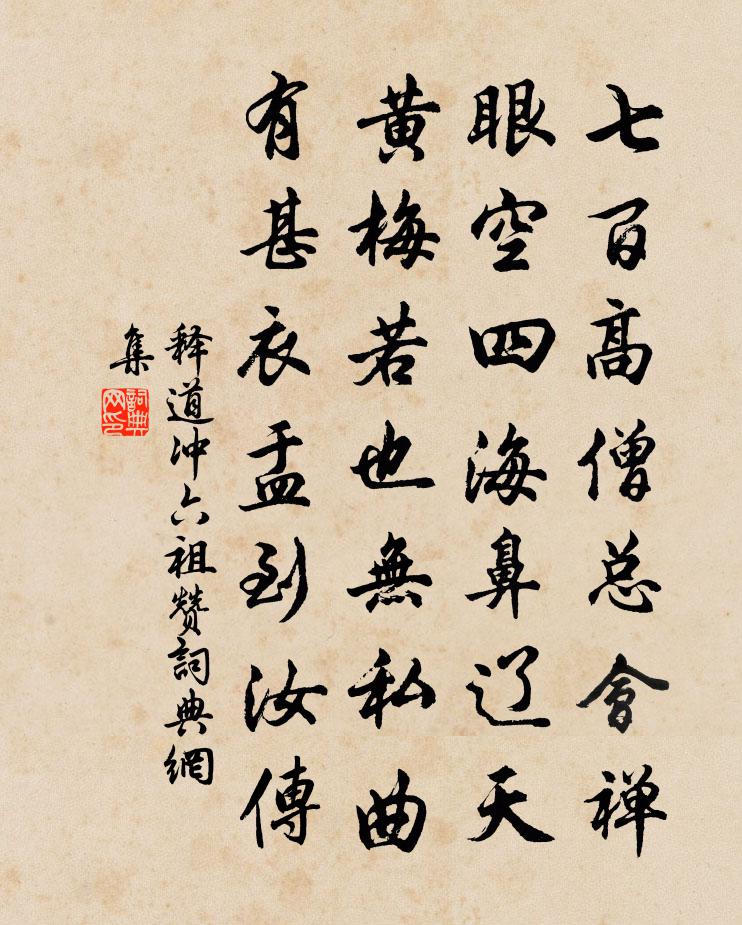 七百高僧总會禅
眼空四海鼻辽天
黄梅若也無私曲
有甚衣盂到汝傳
释道冲六祖赞詞典網
集
詞典网印